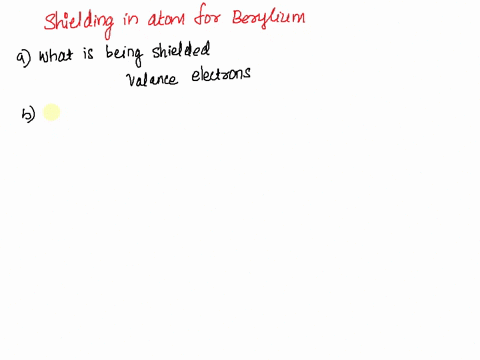 Shielding in atom for Berylium
a) What is being shielded
Valance electrons
b)